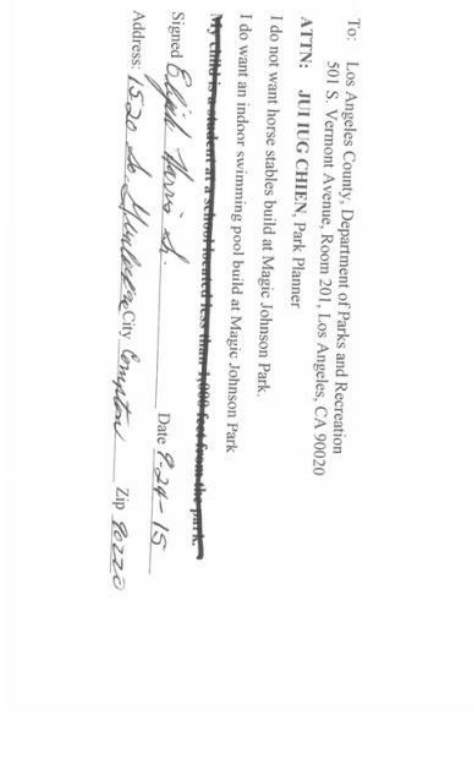 To: Los Angeles County, Department of Parks and Recreation
501 S. Vermont Avenue, Room 201, Los Angeles, CA 90020
ATTN: JUI IUG CHIEN, Park Planner
I do not want horse stables build at Magic Johnson Park.
I do want an indoor swimming pool build at Magic Johnson Park
My child is a student at a school located less than 1,000 feet from the park.
Signed Elijah Harris Sr. Date 9-24-15
Address: 1520 So. City Compton Zip 90220